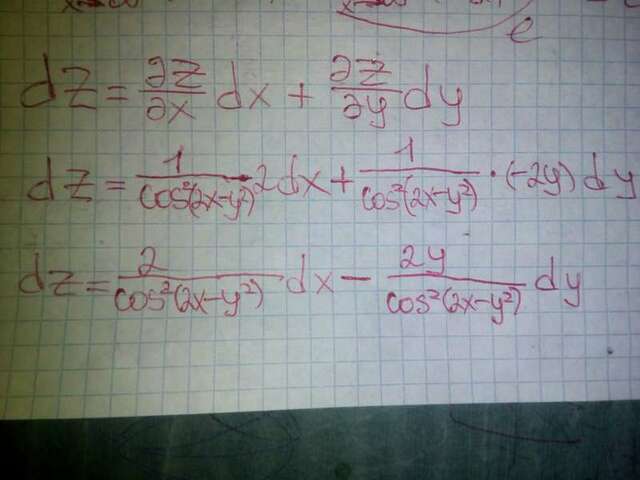 e
dz = ∂z/∂x dx + ∂z/∂y dy
dz = 1/cos²(2x-y²) 2dx + 1/cos²(2x-y²) · (-2y) dy
dz = 2/cos²(2x-y²) dx - 2y/cos²(2x-y²) dy